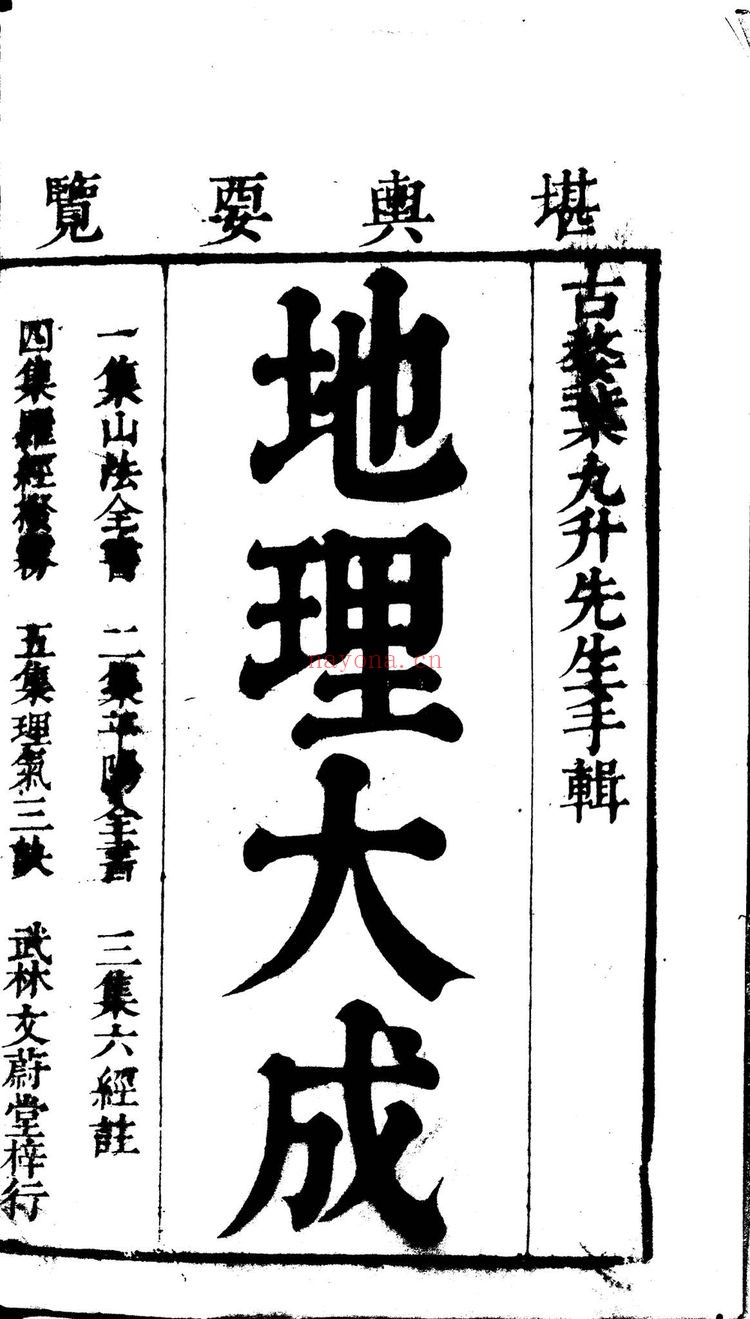 堪輿要覽
古婺葉九升先生手輯
地理大成
一集山法全書 二集平陽全書 三集六經註
四集羅經撥霧 五集理氣三訣 武林文蔚堂梓行
nayona.cn